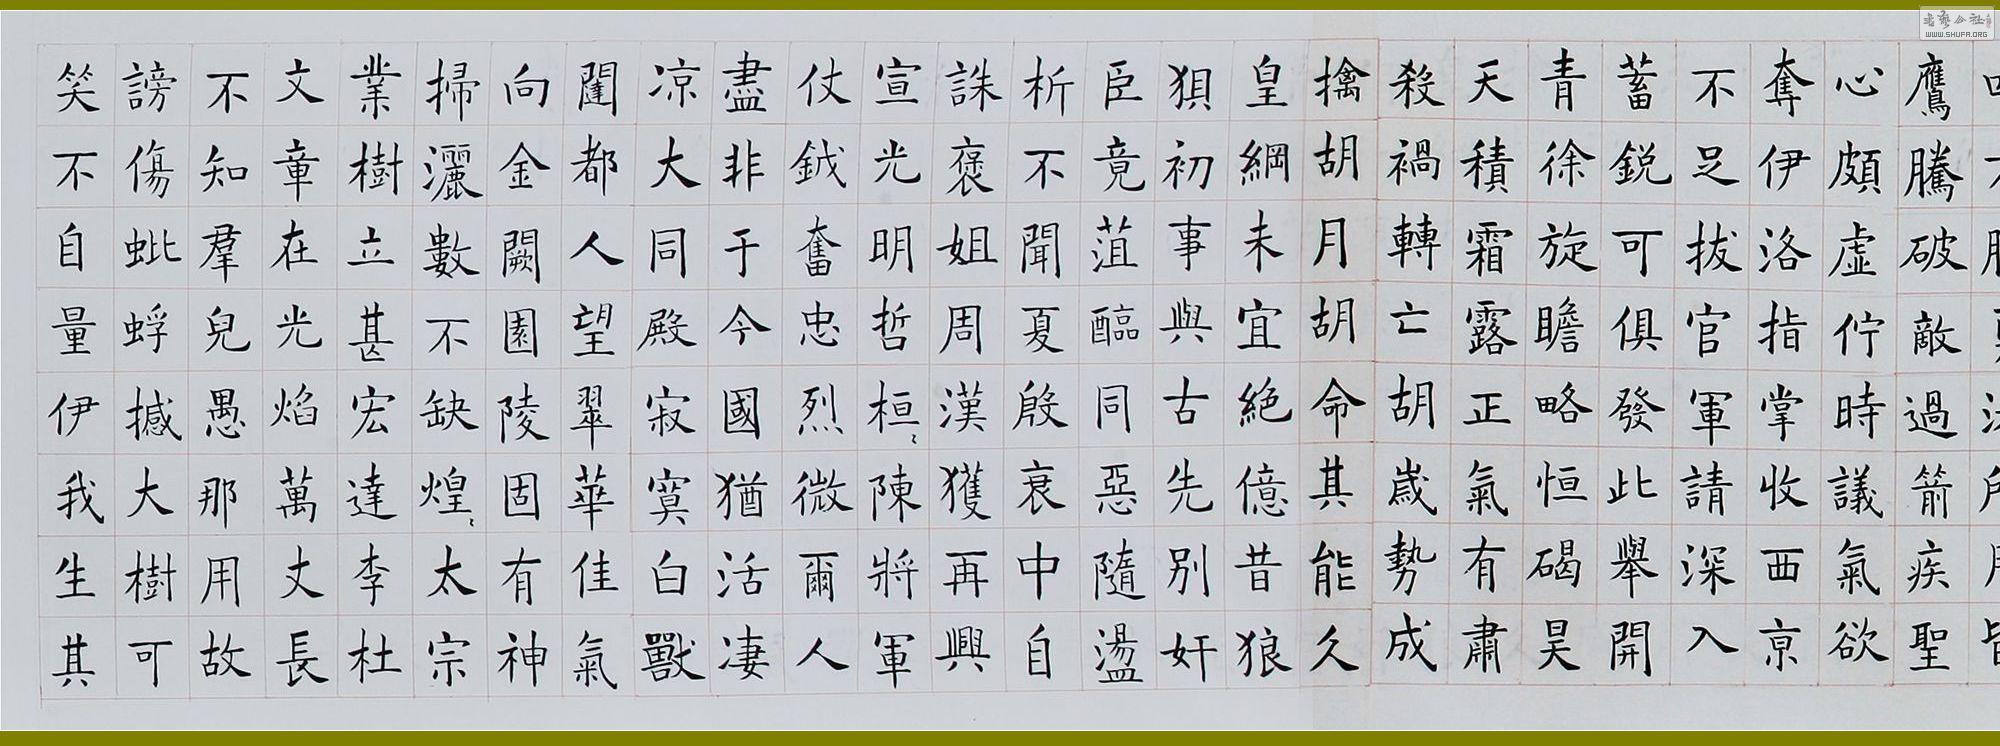 鷹騰破敵過箭疾聖
心頗虛佇時議氣欲
奪伊洛指掌收西京
不足拔官軍請深入
蓄銳可俱發此舉開
青徐旋瞻略恒碣昊
天積霜露正氣有肅
殺禍轉亡胡歲勢成
擒胡月胡命其能久
皇綱未宜絕億昔狼
狽初事與古先別奸
臣竟菹醢同惡隨盪
析不聞夏殷衰中自
誅褒姐周漢獲再興
宣光明哲桓〻陳將軍
仗鉞奮忠烈微爾人
盡非于今國猶活凄
凉大同殿寂寞白獸
闥都人望翠華佳氣
向金闕園陵固有神
掃灑數不缺煌〻太宗
業樹立甚宏達李杜
文章在光焰萬丈長
不知羣兒愚那用故
謗傷蚍蜉撼大樹可
笑不自量伊我生其
WWW.SHUFA.ORG